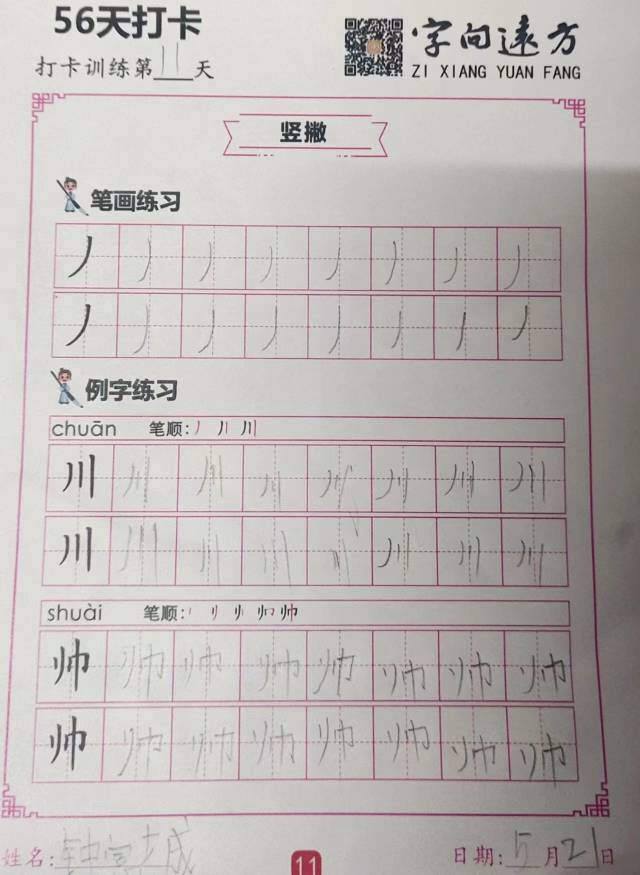 56天打卡
打卡训练第11天
字向远方
ZI XIANG YUAN FANG
竖撇
笔画练习
丿 丿 丿 丿 丿 丿 丿 丿
丿 丿 丿 丿 丿 丿 丿 丿
例字练习
chuān 笔顺:
川 川 川 川 川 川 川 川
川 川 川 川 川 川 川 川
shuài 笔顺:
帅 帅 帅 帅 帅 帅 帅 帅
帅 帅 帅 帅 帅 帅 帅 帅
姓名:钟 城
11
日期:5月21日